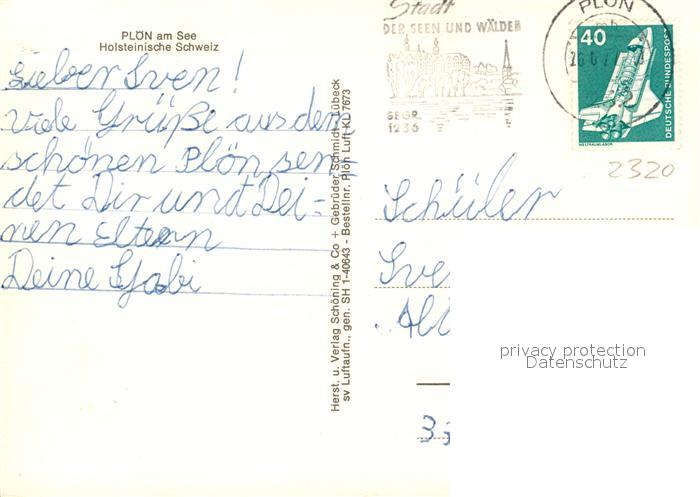 PLÖN am See
Holsteinische Schweiz
Lieber Sven!
viele Grüße aus dem
schönen Plön sen-
det Dir und Dei=
nen Eltern
Deine Gabi
Herst. u. Verlag Schöning & Co + Gebrüder Schmidt - Lübeck
sv Luftaufn., gen. SH 1-40643 - Bestellnr. Plön Luft KL 7673
Stadt
DER SEEN UND WÄLDER
GEGR.
1236
PLÖN
mb
40
DEUTSCHE BUNDESPOST
WELTRAUMLABOR
2320
Schüler
Sve
privacy protection
Datenschutz